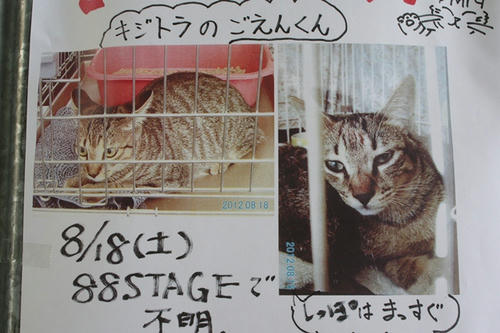 キジトラの ごえんくん
2012.08.18
8/18(土)
88STAGEで
不明
しっぽは まっすぐ